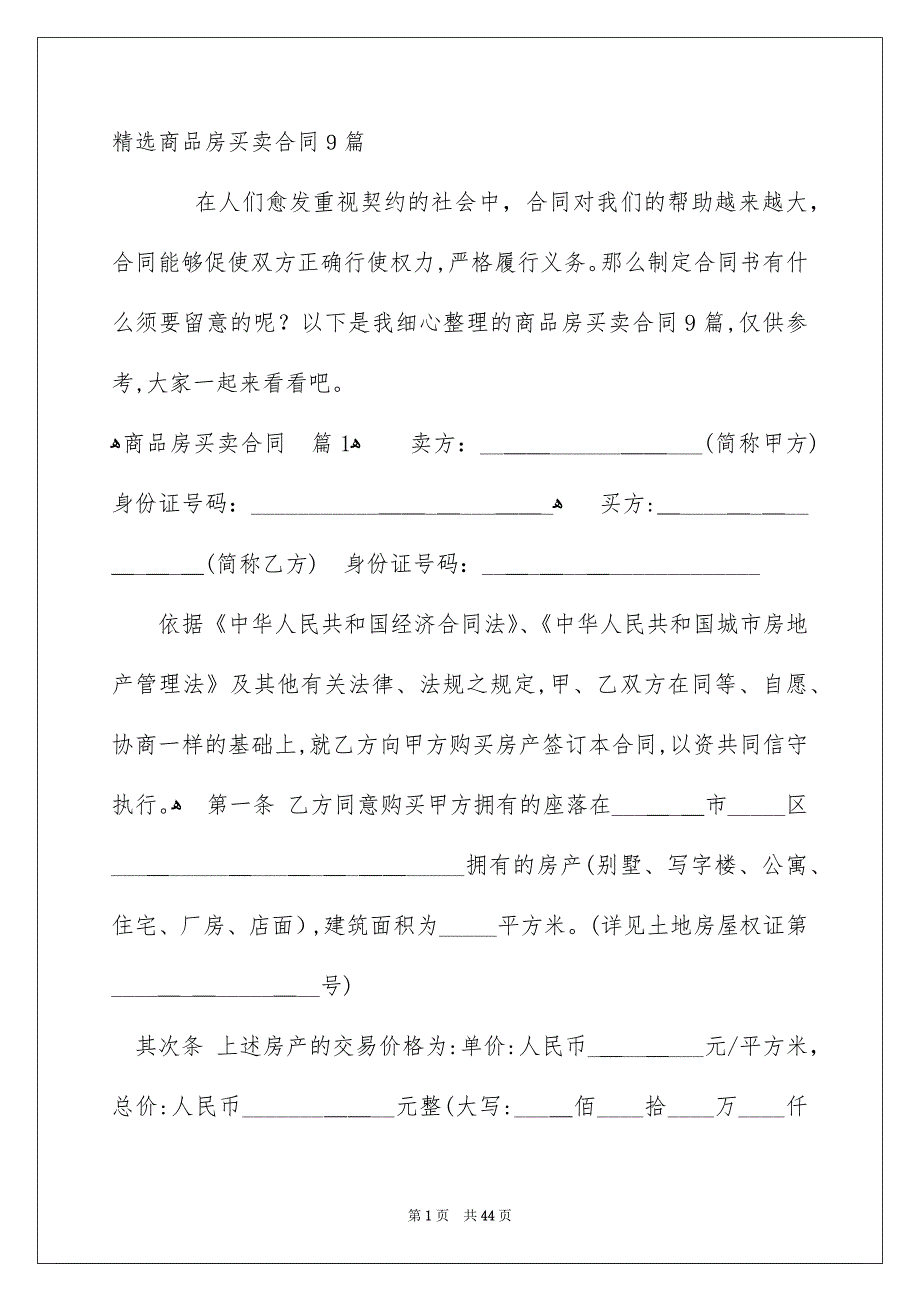 精选商品房买卖合同9篇
在人们愈发重视契约的社会中，合同对我们的帮助越来越大，
合同能够促使双方正确行使权力,严格履行义务。那么制定合同书有什
么须要留意的呢？以下是我细心整理的商品房买卖合同9篇,仅供参
考,大家一起来看看吧。
ﻫ商品房买卖合同　篇1ﻫ　　卖方：___________________(简称甲方)
身份证号码：__________________________ﻫ　买方:_____________
________(简称乙方)　身份证号码：________________________
依据《中华人民共和国经济合同法》、《中华人民共和国城市房地
产管理法》及其他有关法律、法规之规定,甲、乙双方在同等、自愿、
协商一样的基础上,就乙方向甲方购买房产签订本合同,以资共同信守
执行。ﻫ　第一条 乙方同意购买甲方拥有的座落在________市_____区
______________________________拥有的房产(别墅、写字楼、公寓、
住宅、厂房、店面）,建筑面积为_____平方米。(详见土地房屋权证第
__________________号)
其次条 上述房产的交易价格为:单价:人民币__________元/平方米，
总价:人民币_______________元整(大写:_____佰____拾____万____仟
第 1 页　共 44 页